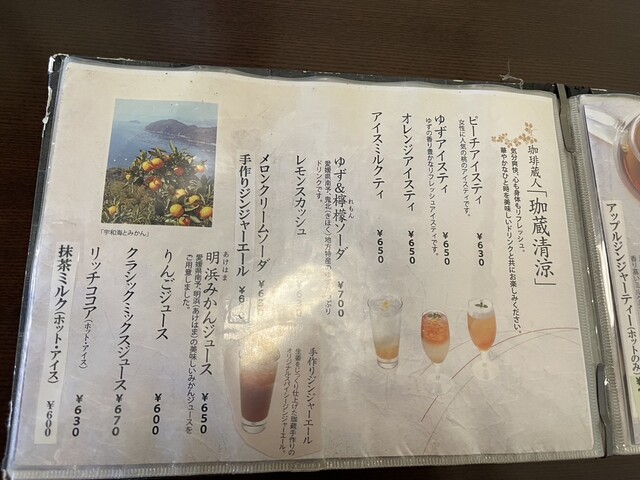 珈琲蔵人「珈蔵清涼」
気分爽快、心も身体もリフレッシュ。
華やかなひと時を美味しいドリンクと共にお楽しみください。
ピーチアイスティ ¥630
女性に人気の桃のアイスティです。
ゆずアイスティ ¥650
ゆずの香り豊かなリフレッシュアイスティです。
オレンジアイスティ ¥650
アイスミルクティ ¥650
ゆず&檸檬ソーダ ¥700
れもん
愛媛県南予、鬼北(きほく)地方特産
ドリンクです。
レモンスカッシュ
メロンクリームソーダ
手作りジンジャーエール
手作りジンジャーエール
生姜をじっくり仕上げた珈蔵手作りの
オリジナルスパイシージンジャーエール。
「宇和海とみかん」
あけはま
明浜みかんジュース ¥650
愛媛県南予、明浜(あけはま)の美味しいみかんジュースを
ご用意しました。
りんごジュース ¥600
クラシックミックスジュース ¥670
リッチココア(ホット・アイス) ¥630
抹茶ミルク(ホット・アイス) ¥600
アップルジンジャーティー(ホットのみ)